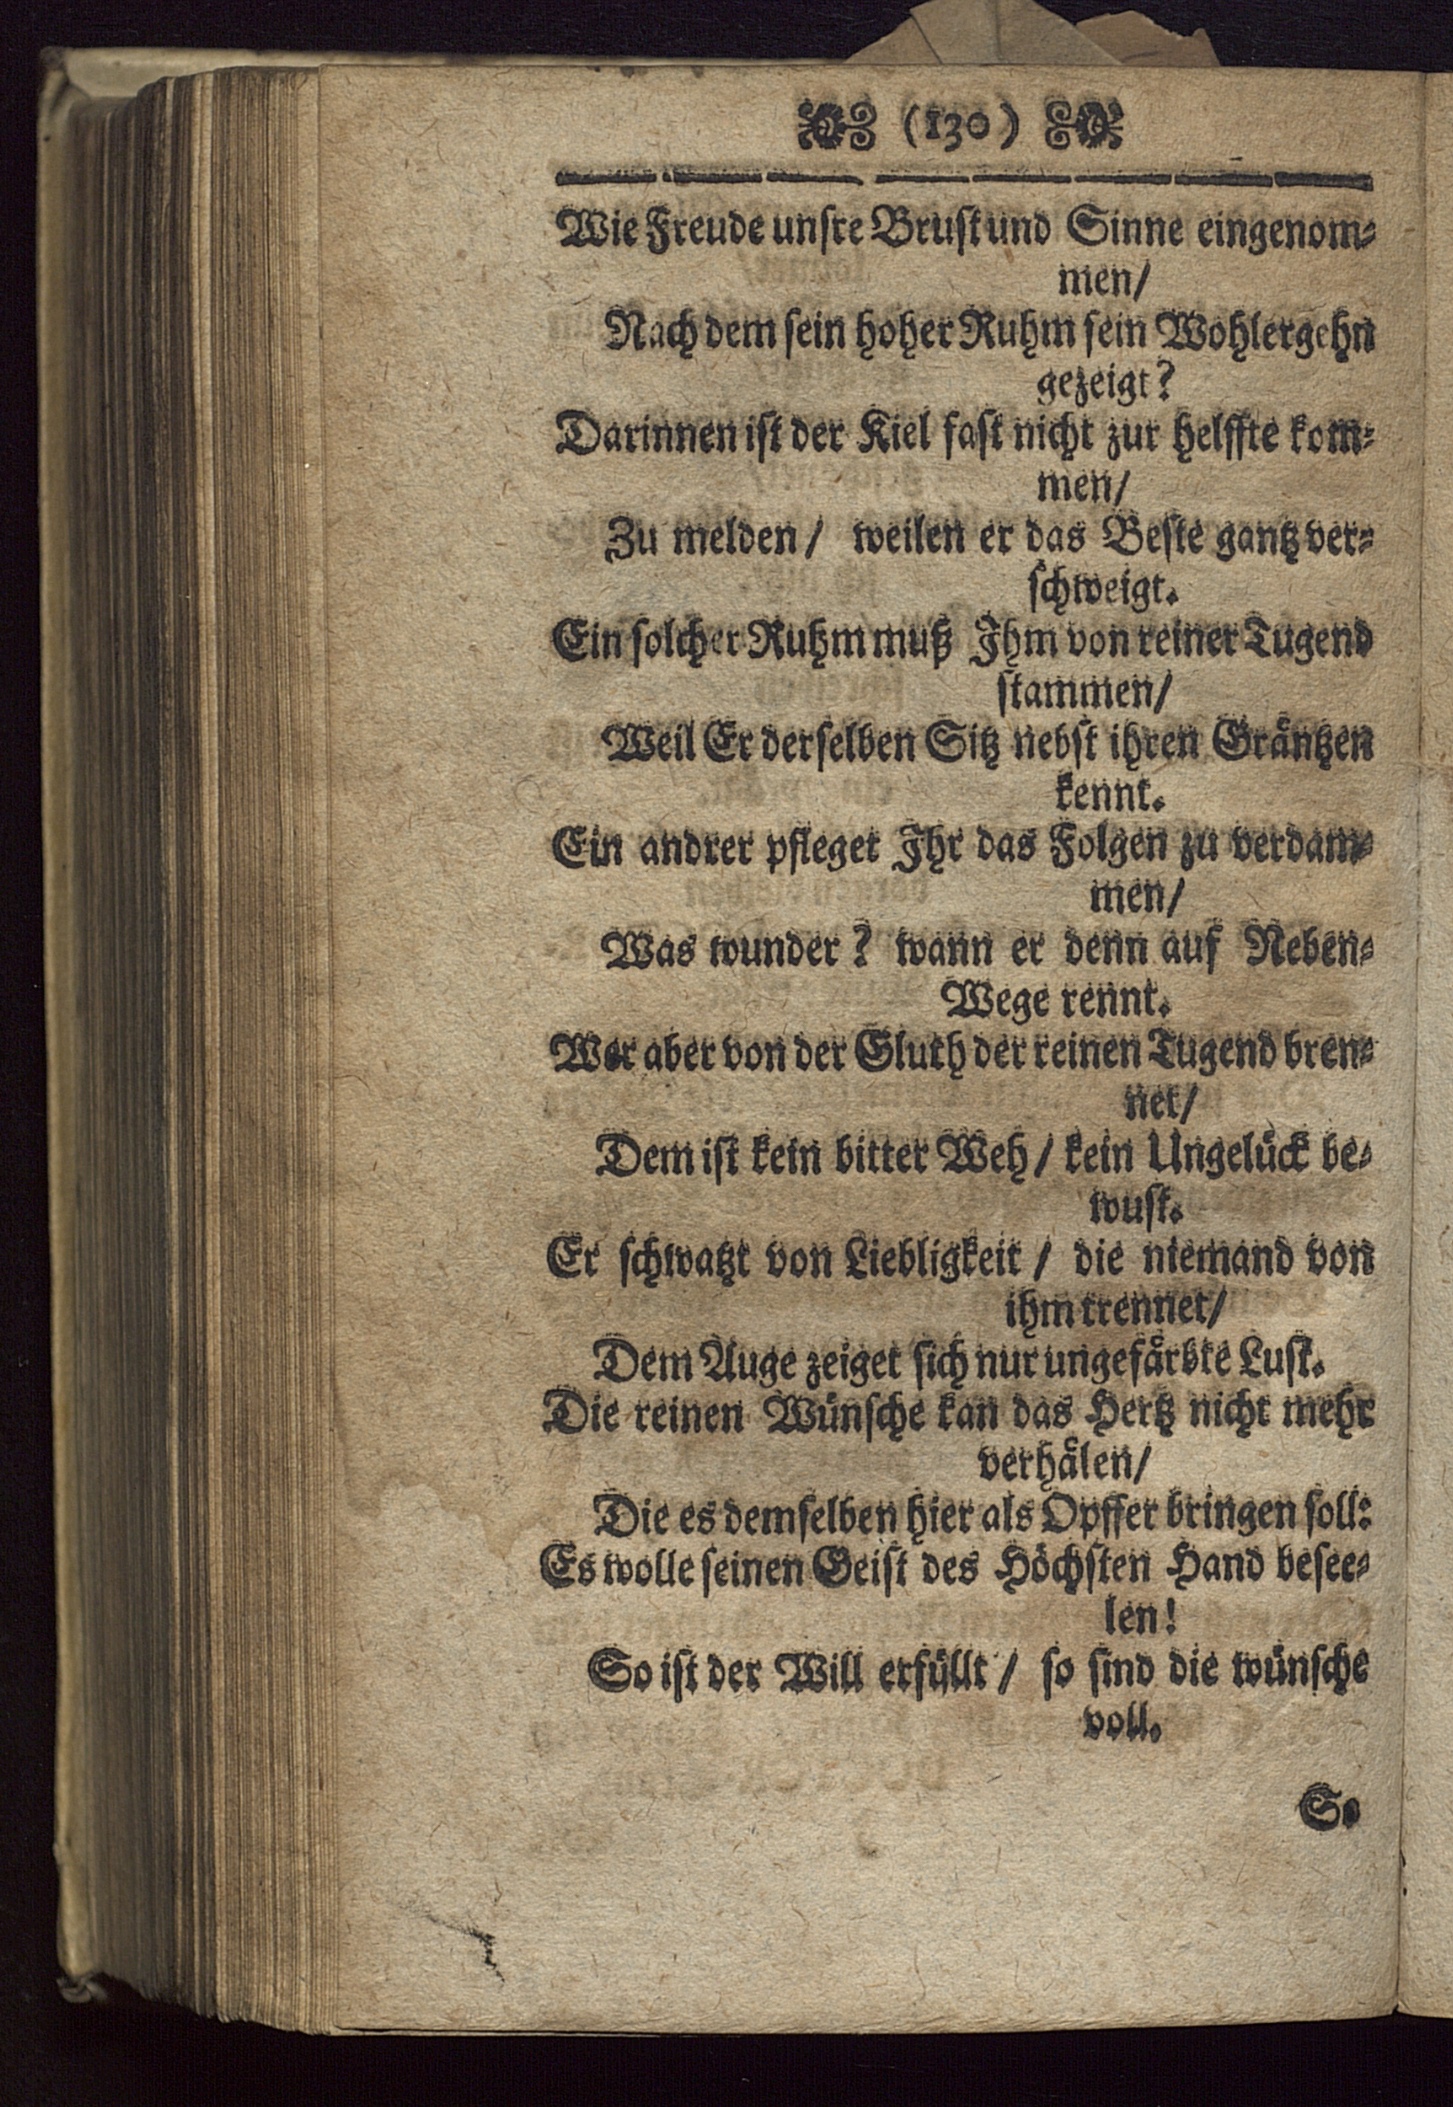 (130)
Wie Freude unsre Brust und Sinne eingenom⸗
men/
Nach dem sein hoher Ruhm sein Wohlergehn
gezeigt?
Darinnen ist der Kiel fast nicht zur helffte kom⸗
men/
Zu melden/ weilen er das Beste gantz ver⸗
schweigt.
Ein solcher Ruhm muß Ihm von reiner Tugend
stammen/
Weil Er derselben Sitz nebst ihren Gräntzen
kennt.
Ein andrer pfleget Ihr das Folgen zu verdam⸗
men/
Was wunder? wann er denn auf Neben⸗
Wege rennt.
Wer aber von der Gluth der reinen Tugend bren⸗
net/
Dem ist kein bitter Weh/ kein Ungelück be⸗
wust.
Er schwatzt von Liebligkeit/ die niemand von
ihm trennet/
Dem Auge zeiget sich nur ungefärbte Lust.
Die reinen Wünsche kan das Hertz nicht mehr
verhälen/
Die es demselben hier als Opffer bringen soll:
Es wolle seinen Geist des Höchsten Hand besee⸗
len!
So ist der Will erfüllt/ so sind die wünsche
voll.
So